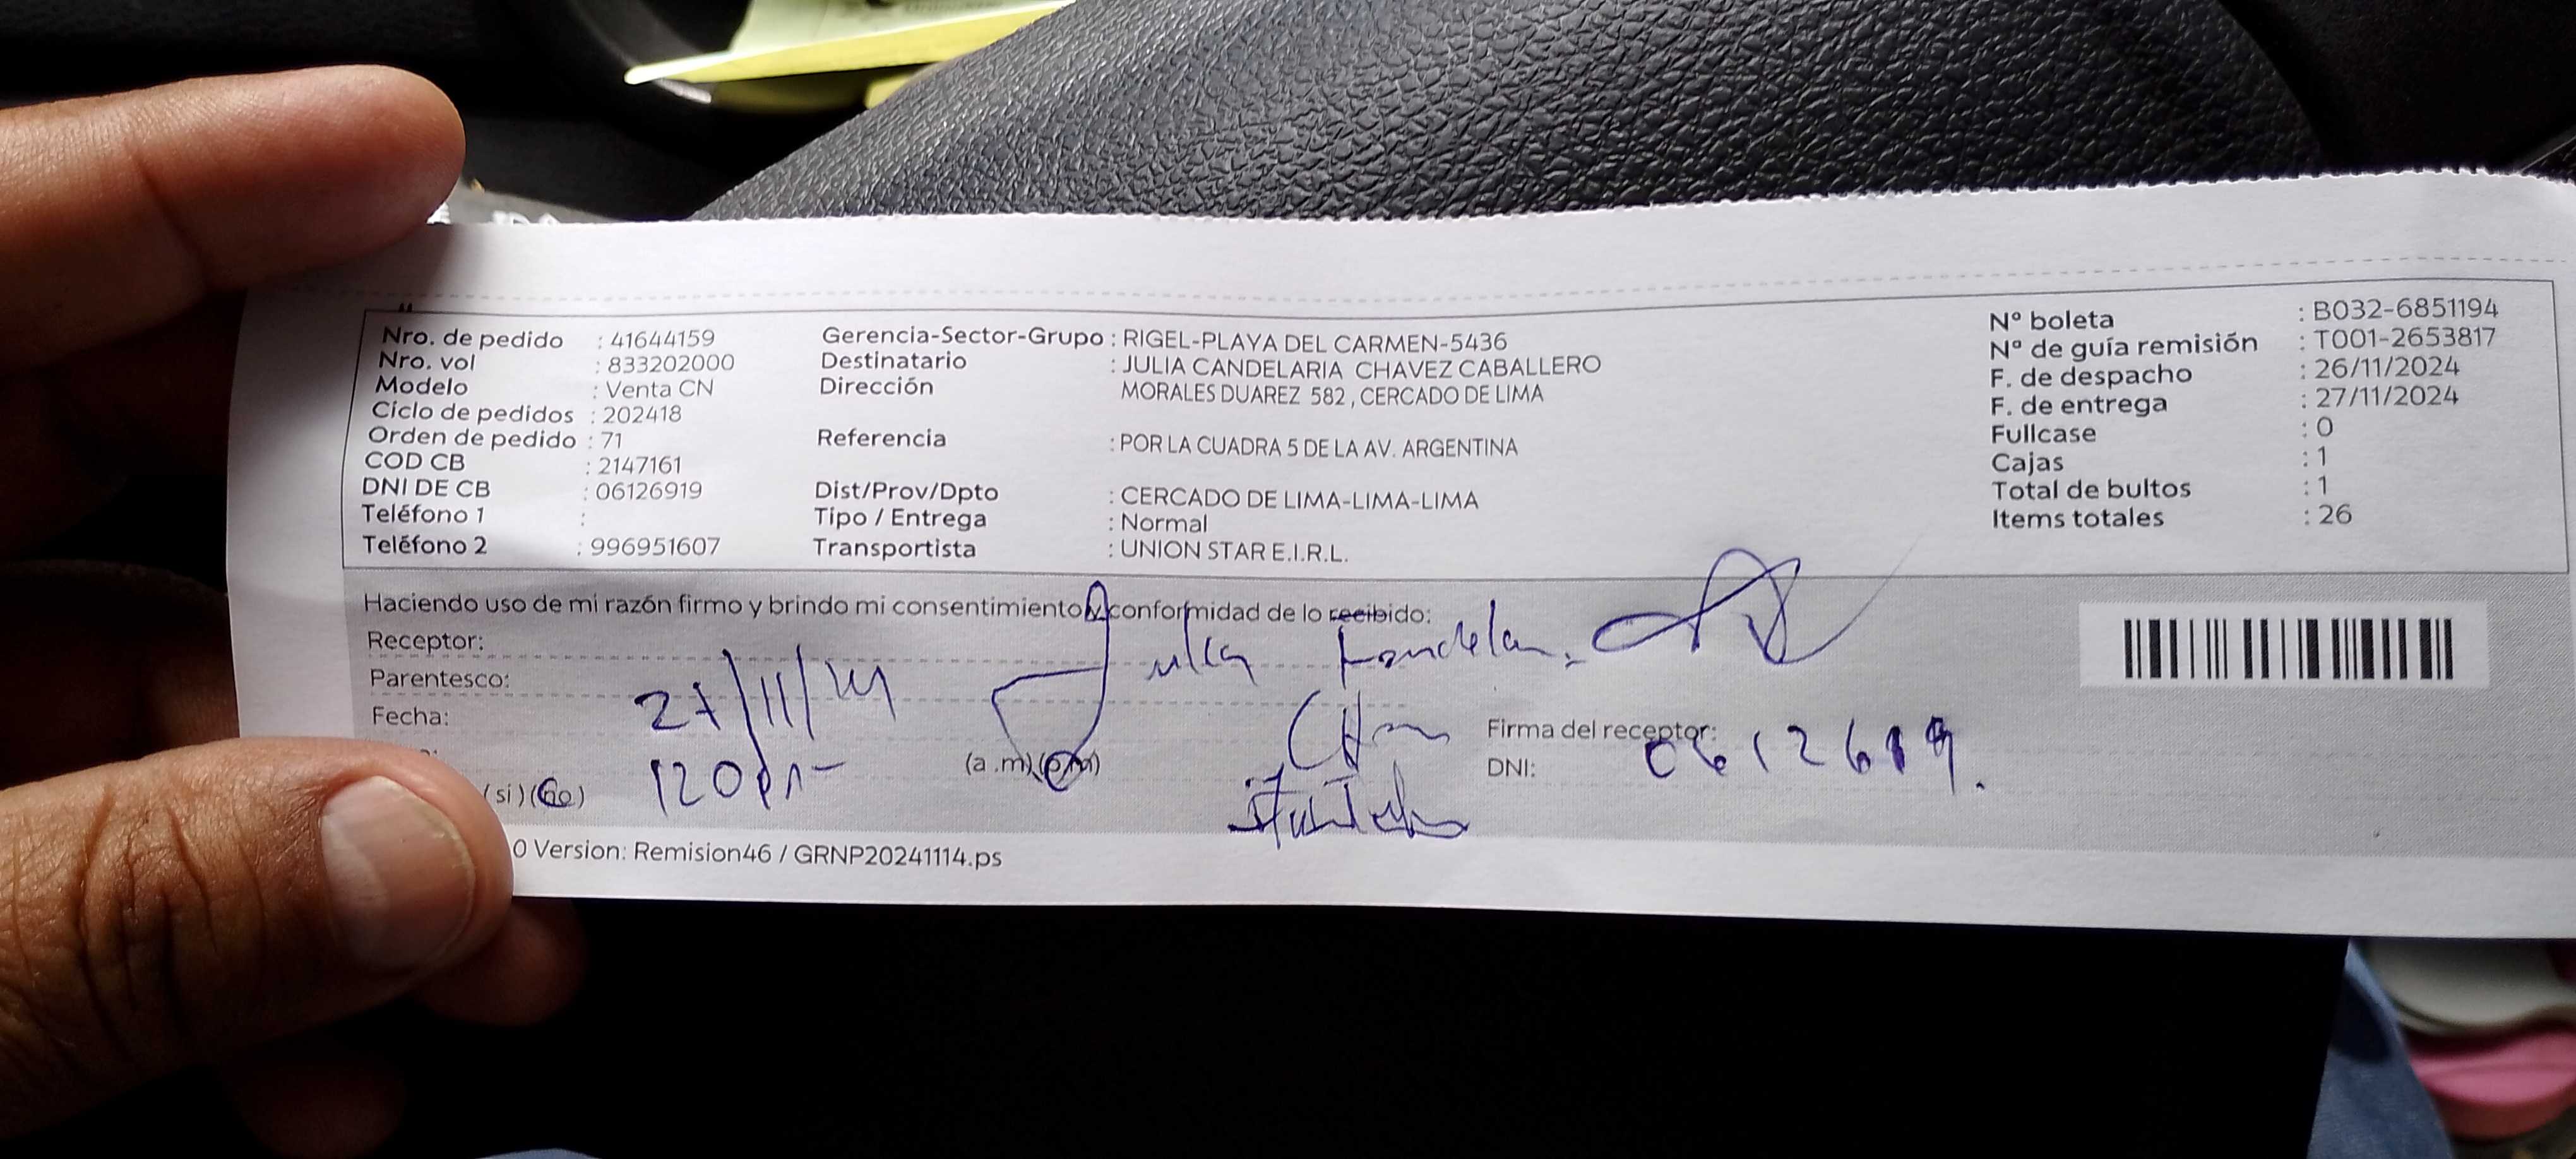 Nro. de pedido : 41644159
Nro. vol : 833202000
Modelo : Venta CN
Ciclo de pedidos : 202418
Orden de pedido : 71
COD CB : 2147161
DNI DE CB : 06126919
Teléfono 1 :
Teléfono 2 : 996951607
Gerencia-Sector-Grupo : RIGEL-PLAYA DEL CARMEN-5436
Destinatario : JULIA CANDELARIA CHAVEZ CABALLERO
Dirección MORALES DUAREZ 582 , CERCADO DE LIMA
Referencia : POR LA CUADRA 5 DE LA AV. ARGENTINA
Dist/Prov/Dpto : CERCADO DE LIMA-LIMA-LIMA
Tipo / Entrega : Normal
Transportista : UNION STAR E.I.R.L.
Nº boleta : B032-6851194
Nº de guía remisión : T001-2653817
F. de despacho : 26/11/2024
F. de entrega : 27/11/2024
Fullcase : 0
Cajas : 1
Total de bultos : 1
Items totales : 26
Haciendo uso de mi razón firmo y brindo mi consentimiento y conformidad de lo recibido:
Receptor: Julia
Parentesco:
Fecha: 27/11/24
120pm (a .m) (p.m)
Firma del receptor:
DNI:
(si) (no)
0 Version: Remision46 / GRNP20241114.ps